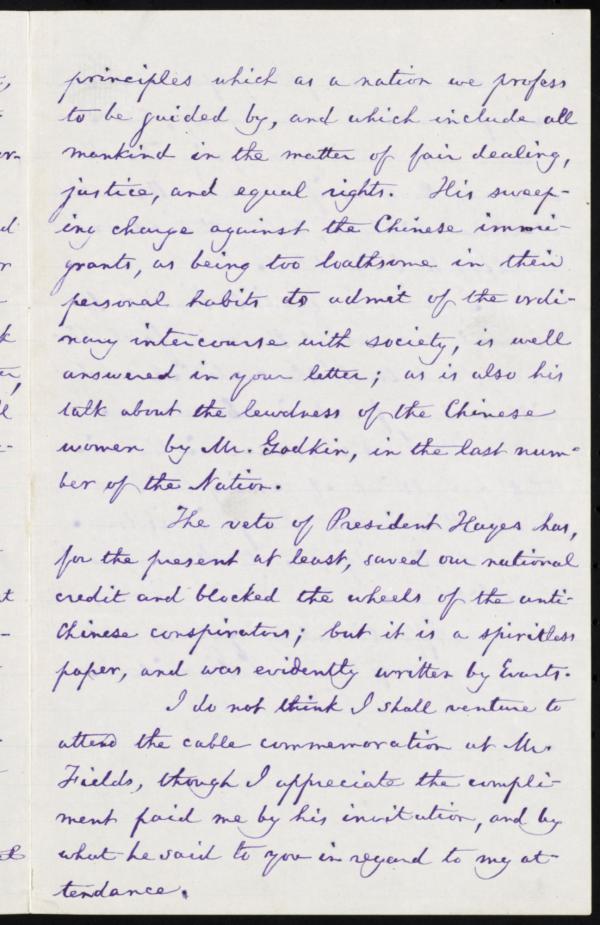 principles which as a nation we profess
to be guided by, and which include all
mankind in the matter of fair dealing,
justice, and equal rights. His sweep-
ing charge against the Chinese immi-
grants, as being too loathsome in their
personal habits to admit of the ordi-
nary intercourse with society, is well
answered in your letter; as is also his
talk about the lewdness of the Chinese
women by Mr. Godkin, in the last num-
ber of the Nation.
The veto of President Hayes has,
for the present at least, saved our national
credit and blocked the wheels of the anti-
Chinese conspirators; but it is a spiritless
paper, and was evidently written by Evarts.
I do not think I shall venture to
attend the cable commemoration at Mr.
Fields, though I appreciate the compli-
ment paid me by his invitation, and by
what he said to you in regard to my at-
tendance.